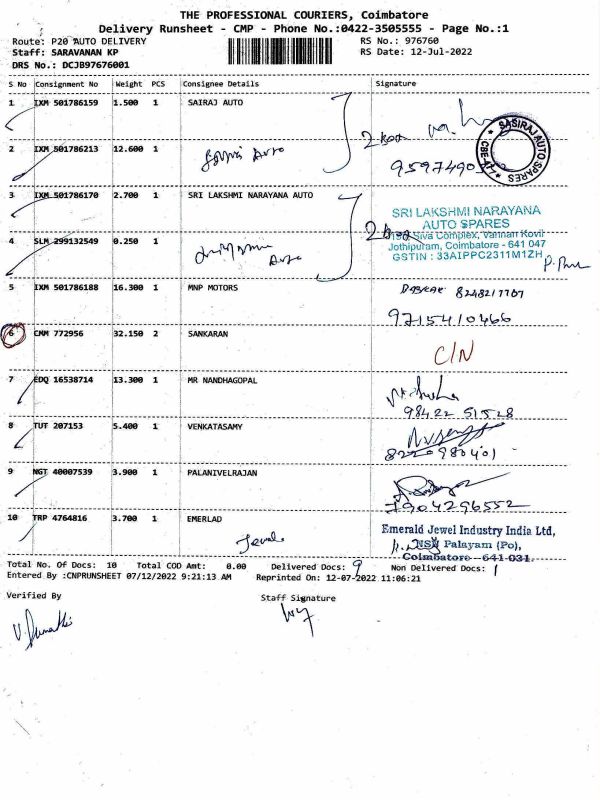 THE PROFESSIONAL COURIERS, Coimbatore
Delivery Runsheet - CMP - Phone No.:0422-3505555 - Page No.:1
Route: P20 AUTO DELIVERY
Staff: SARAVANAN KP
DRS No.: DCJB97676001
RS No.: 976760
RS Date: 12-Jul-2022
S No Consignment No Weight PCS Consignee Details Signature
1 IXM 501786159 1.500 1 SAIRAJ AUTO
SASIRAJ AUTO SPARES
2 IXM 501786213 12.600 1 Auto 2 Box
3 IXM 501786170 2.700 1 SRI LAKSHMI NARAYANA AUTO
SRI LAKSHMI NARAYANA
AUTO SPARES
Siva Complex, Vannan Kovil
Jothipuram, Coimbatore - 641 047
GSTIN : 33AIPPC2311M1ZH
4 SLM 299132549 0.250 1 Auto 2 Box
5 IXM 501786188 16.300 1 MNP MOTORS
9715410466
6 CMM 772956 32.150 2 SANKARAN C/N
7 EDQ 16538714 13.300 1 MR NANDHAGOPAL
98422 51528
8 TUT 207153 5.400 1 VENKATASAMY
8220980401
9 NGT 40007539 3.900 1 PALANIVELRAJAN
7904296552
10 TRP 4764816 3.700 1 EMERLAD
Jewel
Emerald Jewel Industry India Ltd,
Palayam (Po),
Coimbatore - 641 031.
Total No. Of Docs: 10 Total COD Amt: 0.00 Delivered Docs: 9 Non Delivered Docs: 1
Entered By :CNPRUNSHEET 07/12/2022 9:21:13 AM Reprinted On: 12-07-2022 11:06:21
Verified By Staff Signature